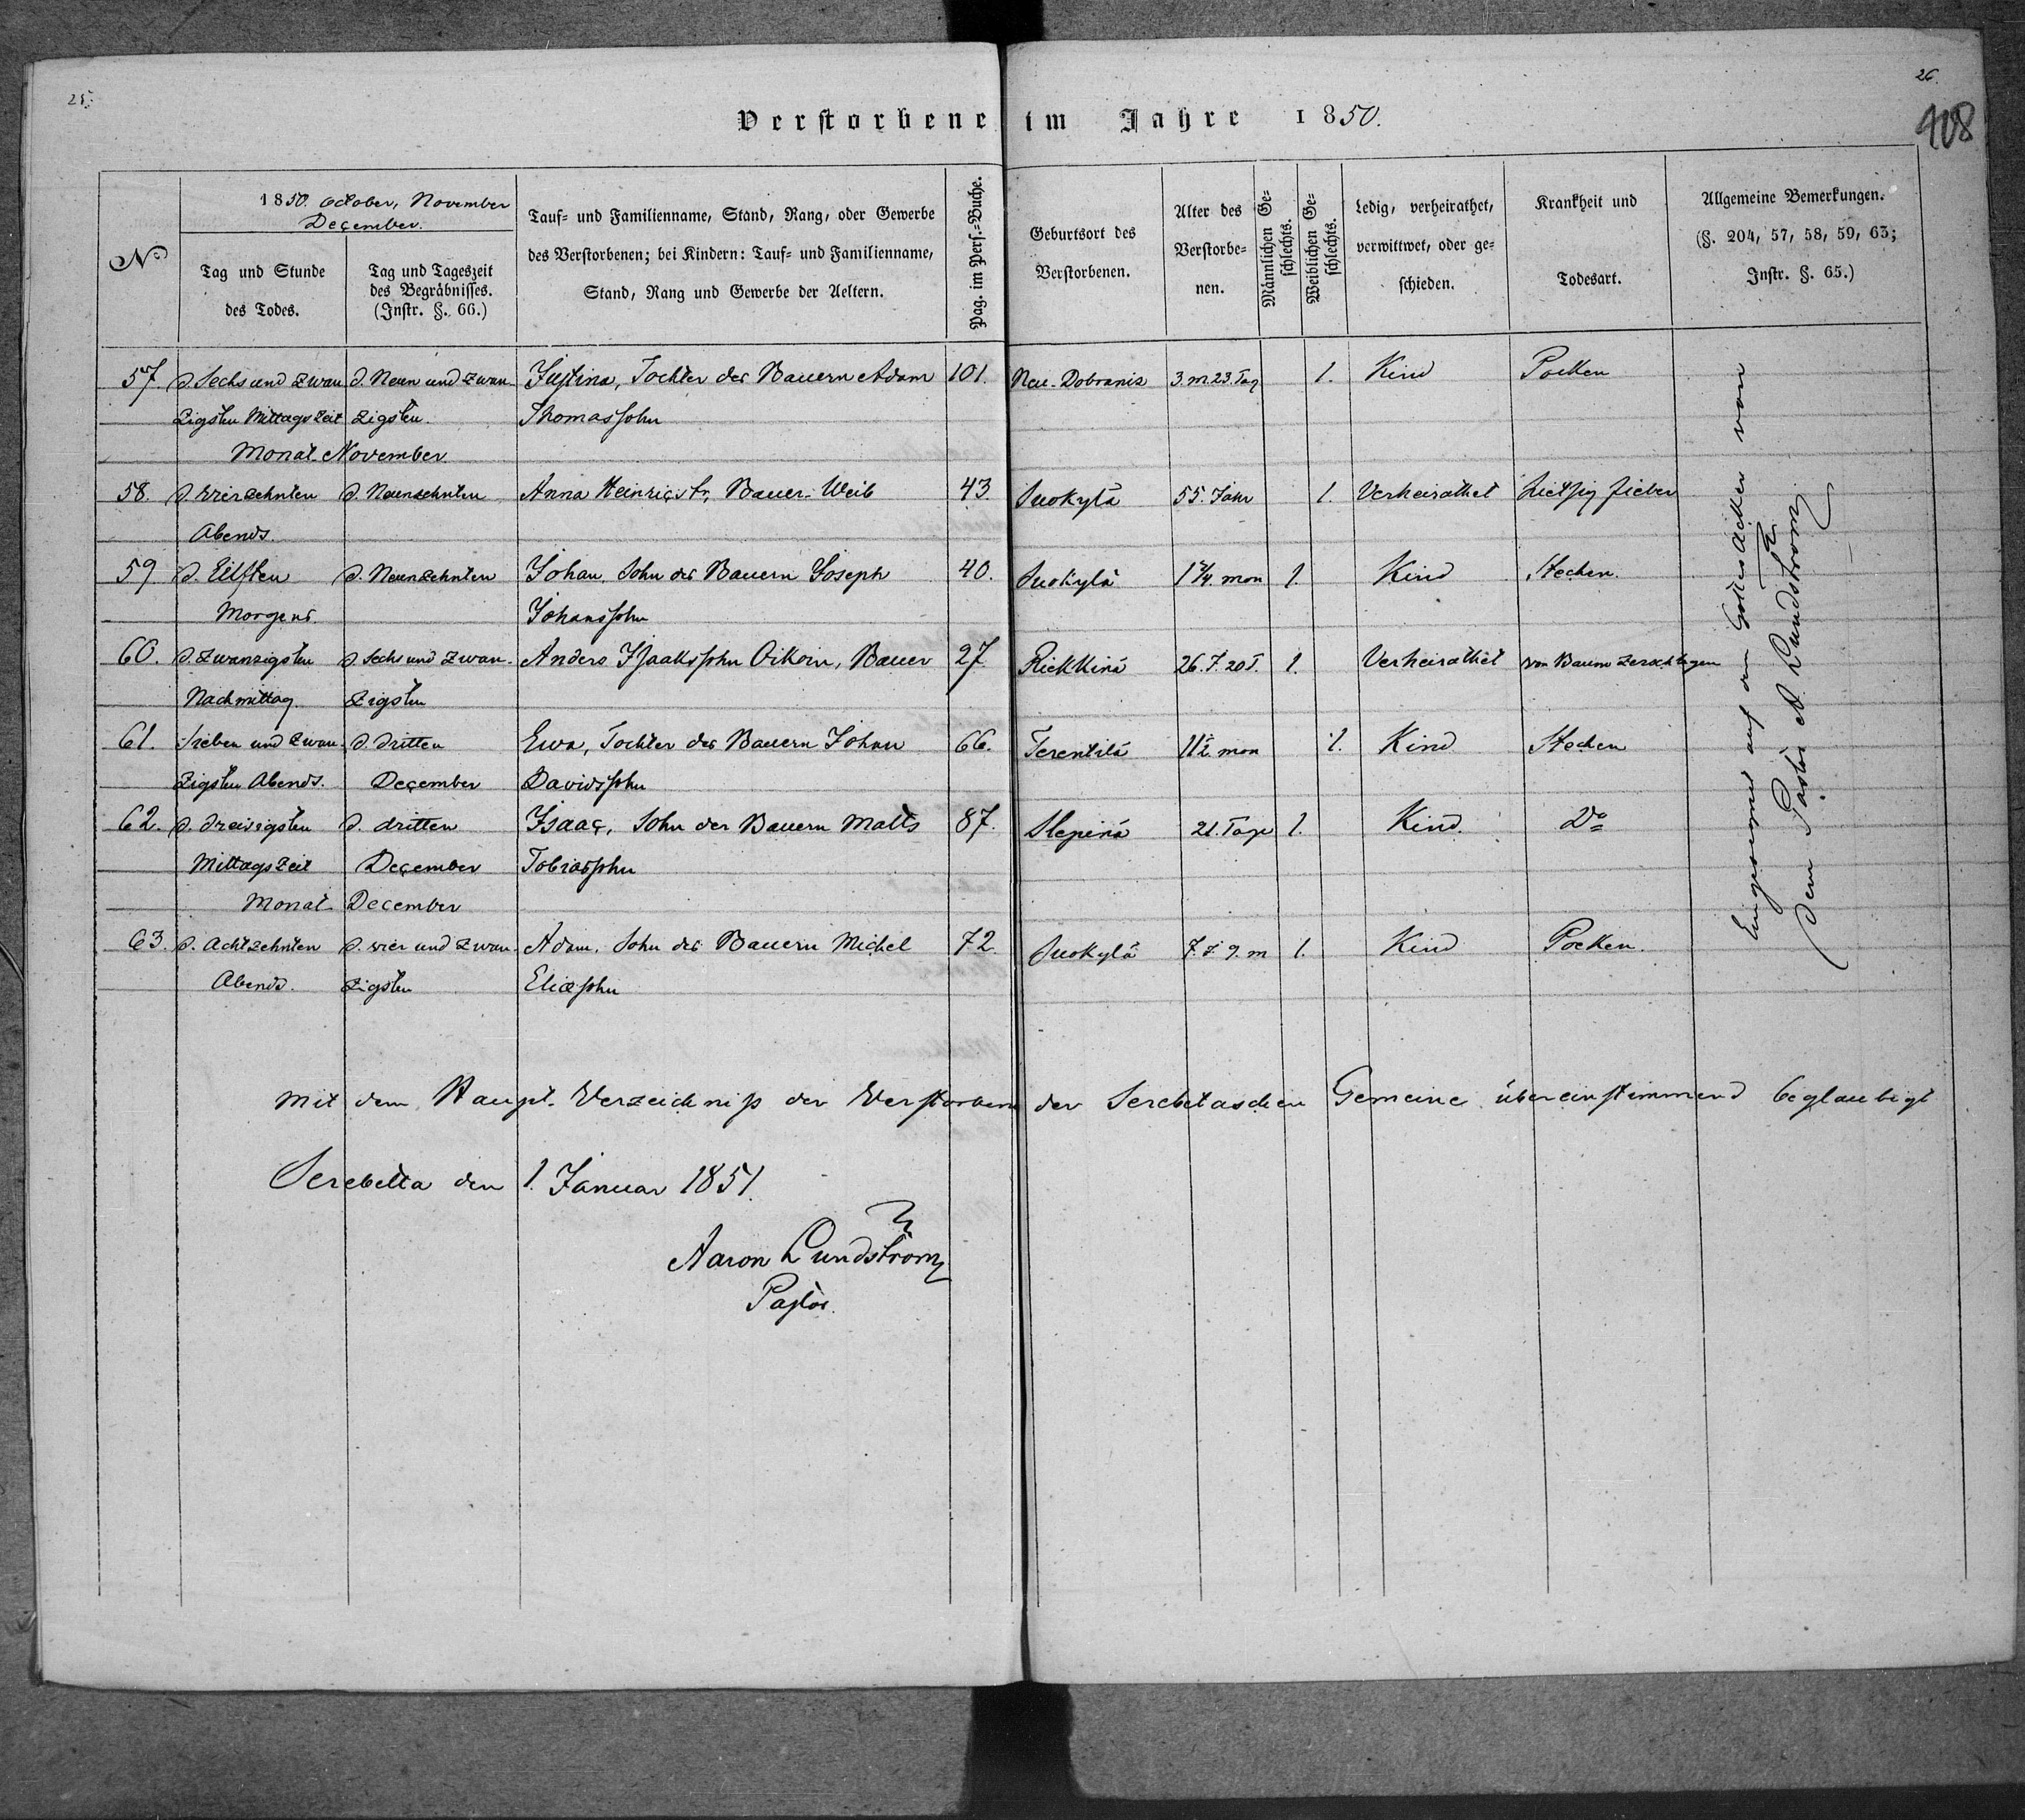 25.
26.
408
Verstorbene im Jahre 1850.
No
1850. October, November
December.
Tag und Stunde
des Todes.
Tag und Tageszeit
des Begräbnisses.
(Instr. §. 66.)
Tauf- und Familienname, Stand, Rang, oder Gewerbe
des Verstorbenen; bei Kindern: Tauf- und Familienname,
Stand, Rang und Gewerbe der Aeltern.
Pag. im Pers.-Buche.
Geburtsort des
Verstorbenen.
Alter des
Verstorbe-
nen.
Männlichen Ge-
schlechts.
Weiblichen Ge-
schlechts.
Ledig, verheirathet,
verwittwet, oder ge-
schieden.
Krankheit und
Todesart.
Allgemeine Bemerkungen.
(§. 204, 57, 58, 59, 63;
Instr. §. 65.)
57. d. Sechs und Zwan d. Neun und Zwan Justina, Tochter des Bauern Adam 101. Neu-Dobraniz 3. m. 23. Tag 1. Kind Pocken
Zigsten Mittagszeit Zigsten. Thomassohn
Monat November
58. d. vierzehnten d. Neunzehnten Anna Heinricstr, Bauer-Weib 43 Suokylä 55. Jahr 1. Verheirathet fieber
Abends.
59 d. Eilften d. Neunzehnten Johan, Sohn des Bauern Joseph 40. Suokylä mon 1. Kind Stechen.
Morgens Johanssohn
60. d. Zwanzigsten d. Sechs und Zwan- Anders Isaakssohn Oikoin, Bauer 27 Riekkinä 26. J. 20 T. 1. Verheirathet von Baum Zerschlagen
Nachmittag Zigsten
61. Sieben und Zwan- d. dritten Ewa, Tochter des Bauern Johan 66. Terentilä mon 1. Kind Stechen
Zigsten Abends. December Davidssohn
62. d. dreisigsten d. dritten Isaac, Sohn des Bauern Matts 87. Slepinä 21. Tage 1. Kind. Do
Mittagszeit December Tobiassohn
Monat December
63. d. Achtzehnten d. vier und Zwan- Adam, Sohn des Bauern Michel 72. Suokylä 7. J. 9. m 1. Kind Pocken.
Abends. Zigsten Eliassohn
Eingesegnet auf dem Gottes Acker von
dem Pastor A Lundström
Mit dem Haupt-Verzeichniss der Verstorbene der Serebetaschen Gemeine übereinstimmend beglaubigt
Serebetta den 1. Januar 1851.
Aaron Lundström
Pastor.